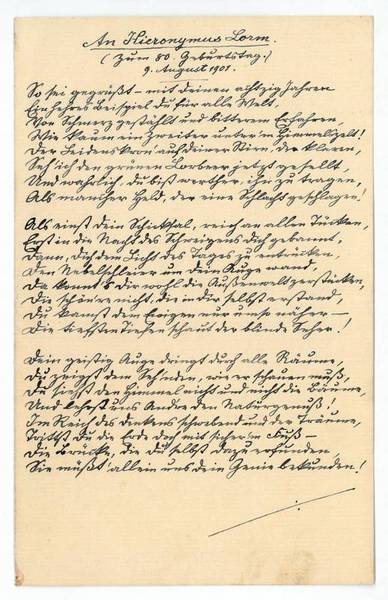 An Hieronymus Lorm.
(Zum 80. Geburtstag.)
9. August 1901.
So sei gegrüßt – mit deinen achtzig Jahren
Ein hehres Beispiel du für alle Welt,
Von Schmerz gestählt und bitterem Erfahren,
Wie kaum ein Zweiter unter'm Himmelszelt!
Der Leidenskron' auf deiner Stirn, der klaren,
Seh' ich den grünen Lorbeer jetzt gesellt,
Und wahrlich, du bist werther, ihn zu tragen,
Als mancher Held, der eine Schlacht geschlagen!
Als einst dein Schicksal, reich an allen Tücken,
Erst in die Nacht des Schweigens dich gebannt,
Dann, dich dem Licht des Tages zu entrücken,
Den Nebelschleier um dein Auge wand,
Da konnt' es dir wohl die Außenwelt zerstücken,
Die schön're nicht, die in dir selbst erstand,
Du kamst dem Ewigen nur um so näher –
Die tiefsten Tiefen schaut der blinde Seher!
Dein geistig Auge dringt durch alle Räume,
Du zeigst dem Seh'nden, wie er schauen muß,
Du siehst den Himmel nicht und nicht die Bäume,
Und lehrst uns Andre den Naturgenuß!
Im Reich des Denkens schwebend und der Träume,
Trittst du die Erde doch mit sicher'm Fuß –
Die Brücke, die du selbst dazu erfunden,
Sie müßt' allein uns dein Genie bekunden!